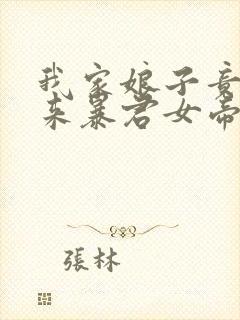 我家娘子竟
来暴君女帝
張林